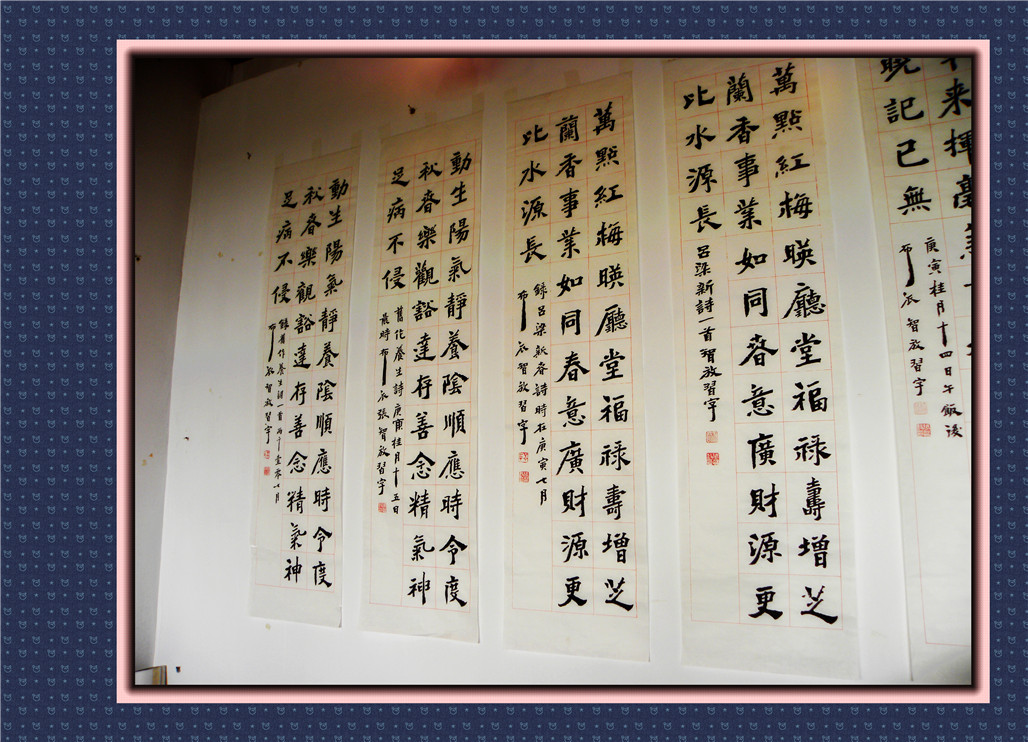 来揮毫
晚記已無
庚寅桂月十四日午飯後
布衣智放習字
萬點紅梅暎廳堂福祿壽增芝
蘭香事業如同春意廣財源更
比水源長
呂梁新詩一首智放習字
萬點紅梅暎廳堂福祿壽增芝
蘭香事業如同春意廣財源更
比水源長
錄呂梁新春詩時在庚寅七月
布衣智放習字
動生陽氣靜養陰順應時令度
秋春樂觀豁達存善念精氣神
足病不侵
舊作養生詩庚寅桂月十五日
晨時布衣張智放習字
動生陽氣靜養陰順應時令度
秋春樂觀豁達存善念精氣神
足病不侵
錄舊作養生詩一首
布衣智放習字